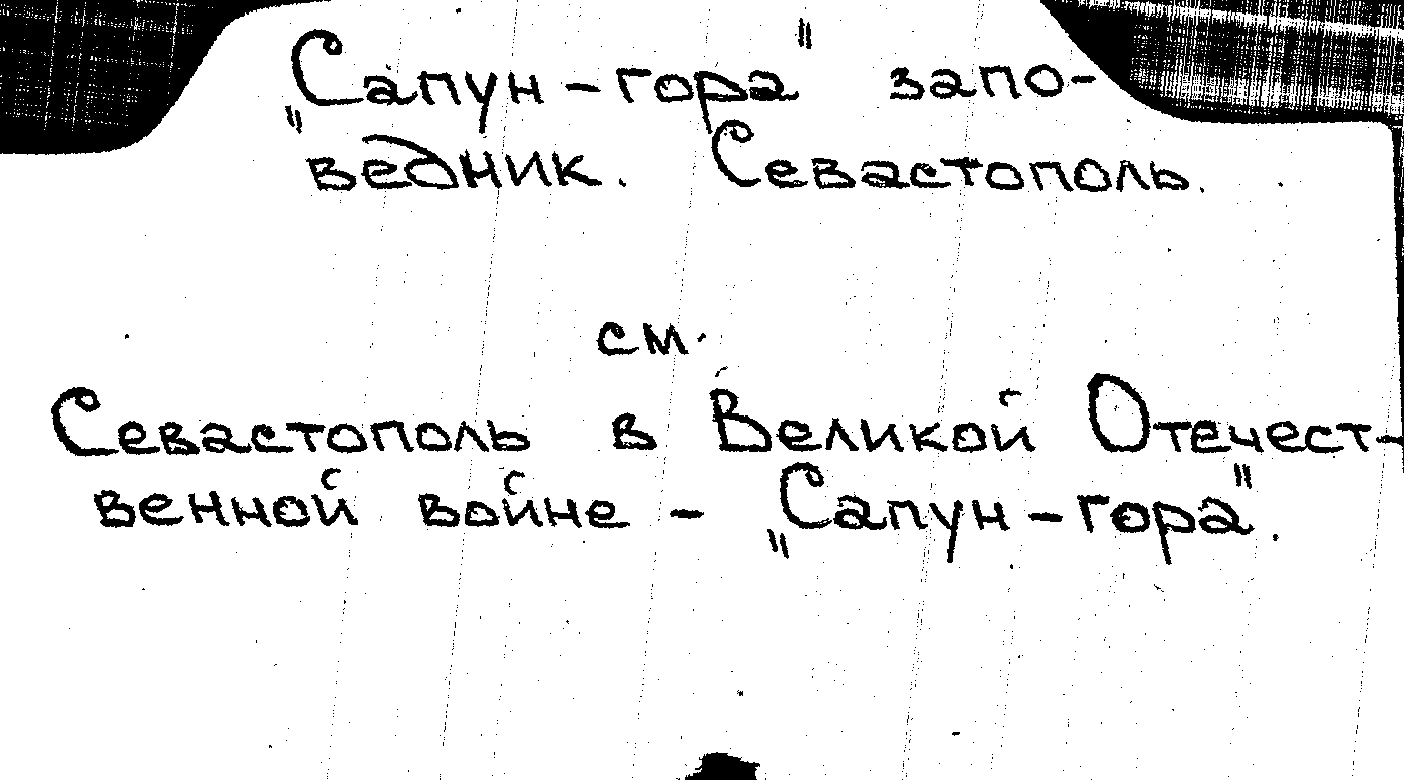 „Сапун-гора" запо-
ведник. Севастополь.
см.
Севастополь в Великой Отечест-
венной войне - „Сапун-гора".